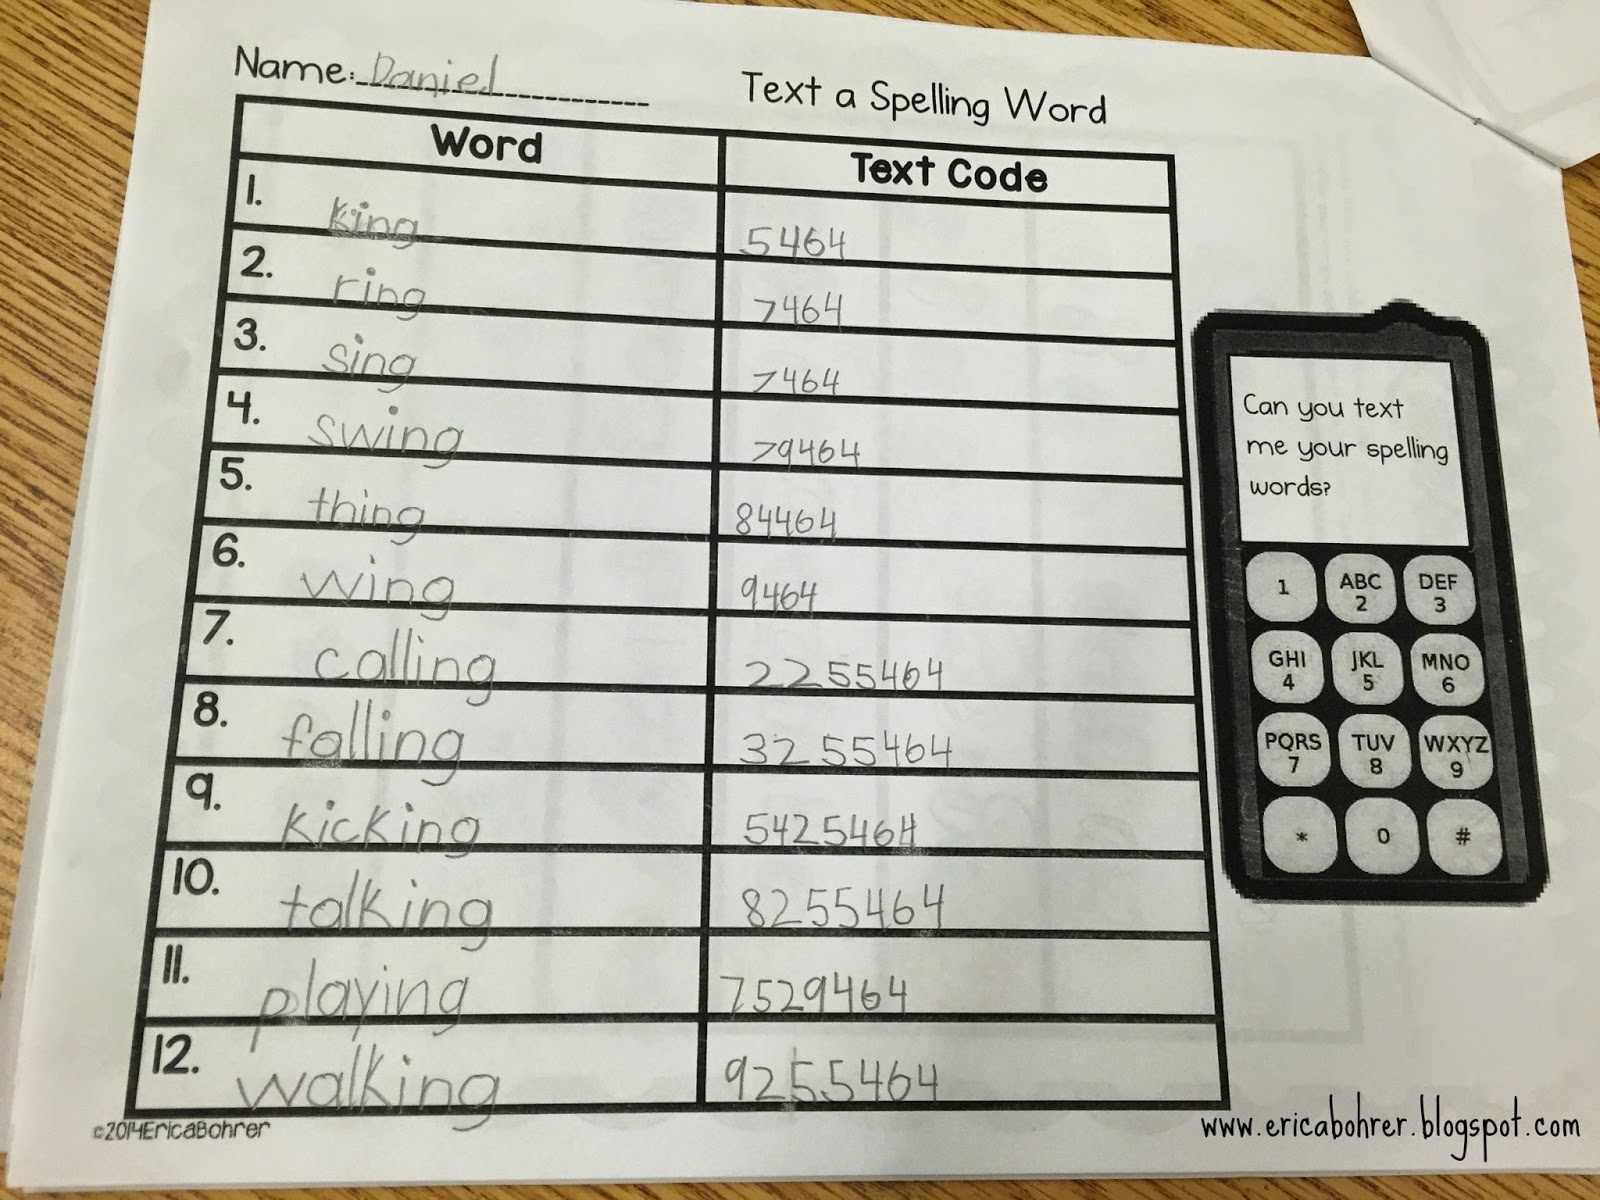 Name: Daniel
Text a Spelling Word
Word Text Code
1. king 5464
2. ring 7464
3. sing 7464
4. swing 79464
5. thing 84464
6. wing 9464
7. calling 2255464
8. falling 3255464
9. kicking 5425464
10. talking 8255464
11. playing 7529464
12. walking 9255464
©2014EricaBohrer
Can you text
me your spelling
words?
1 ABC DEF
2 3
GHI JKL MNO
4 5 6
PQRS TUV WXYZ
7 8 9
* 0 #
www.ericabohrer.blogspot.com